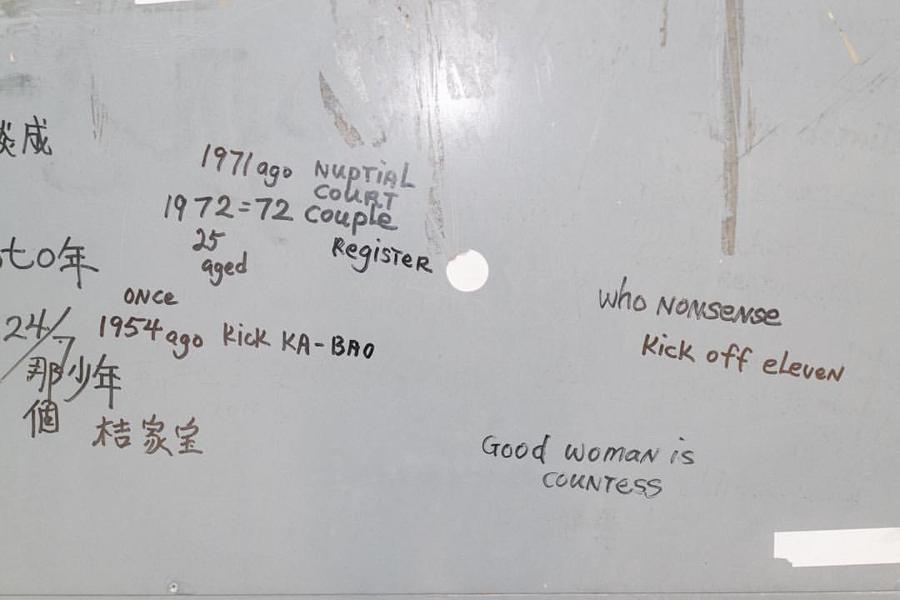 成
1971 ago NUPTIAL
COURT
1972=72 couple
25 RegisteR
aged
七0年
ONCe
1954 ago kick KA-BAO
24/7
那少年
個
桔家宝
who NONSeNSe
Kick off eLeveN
Good woman is
COUNTeSS